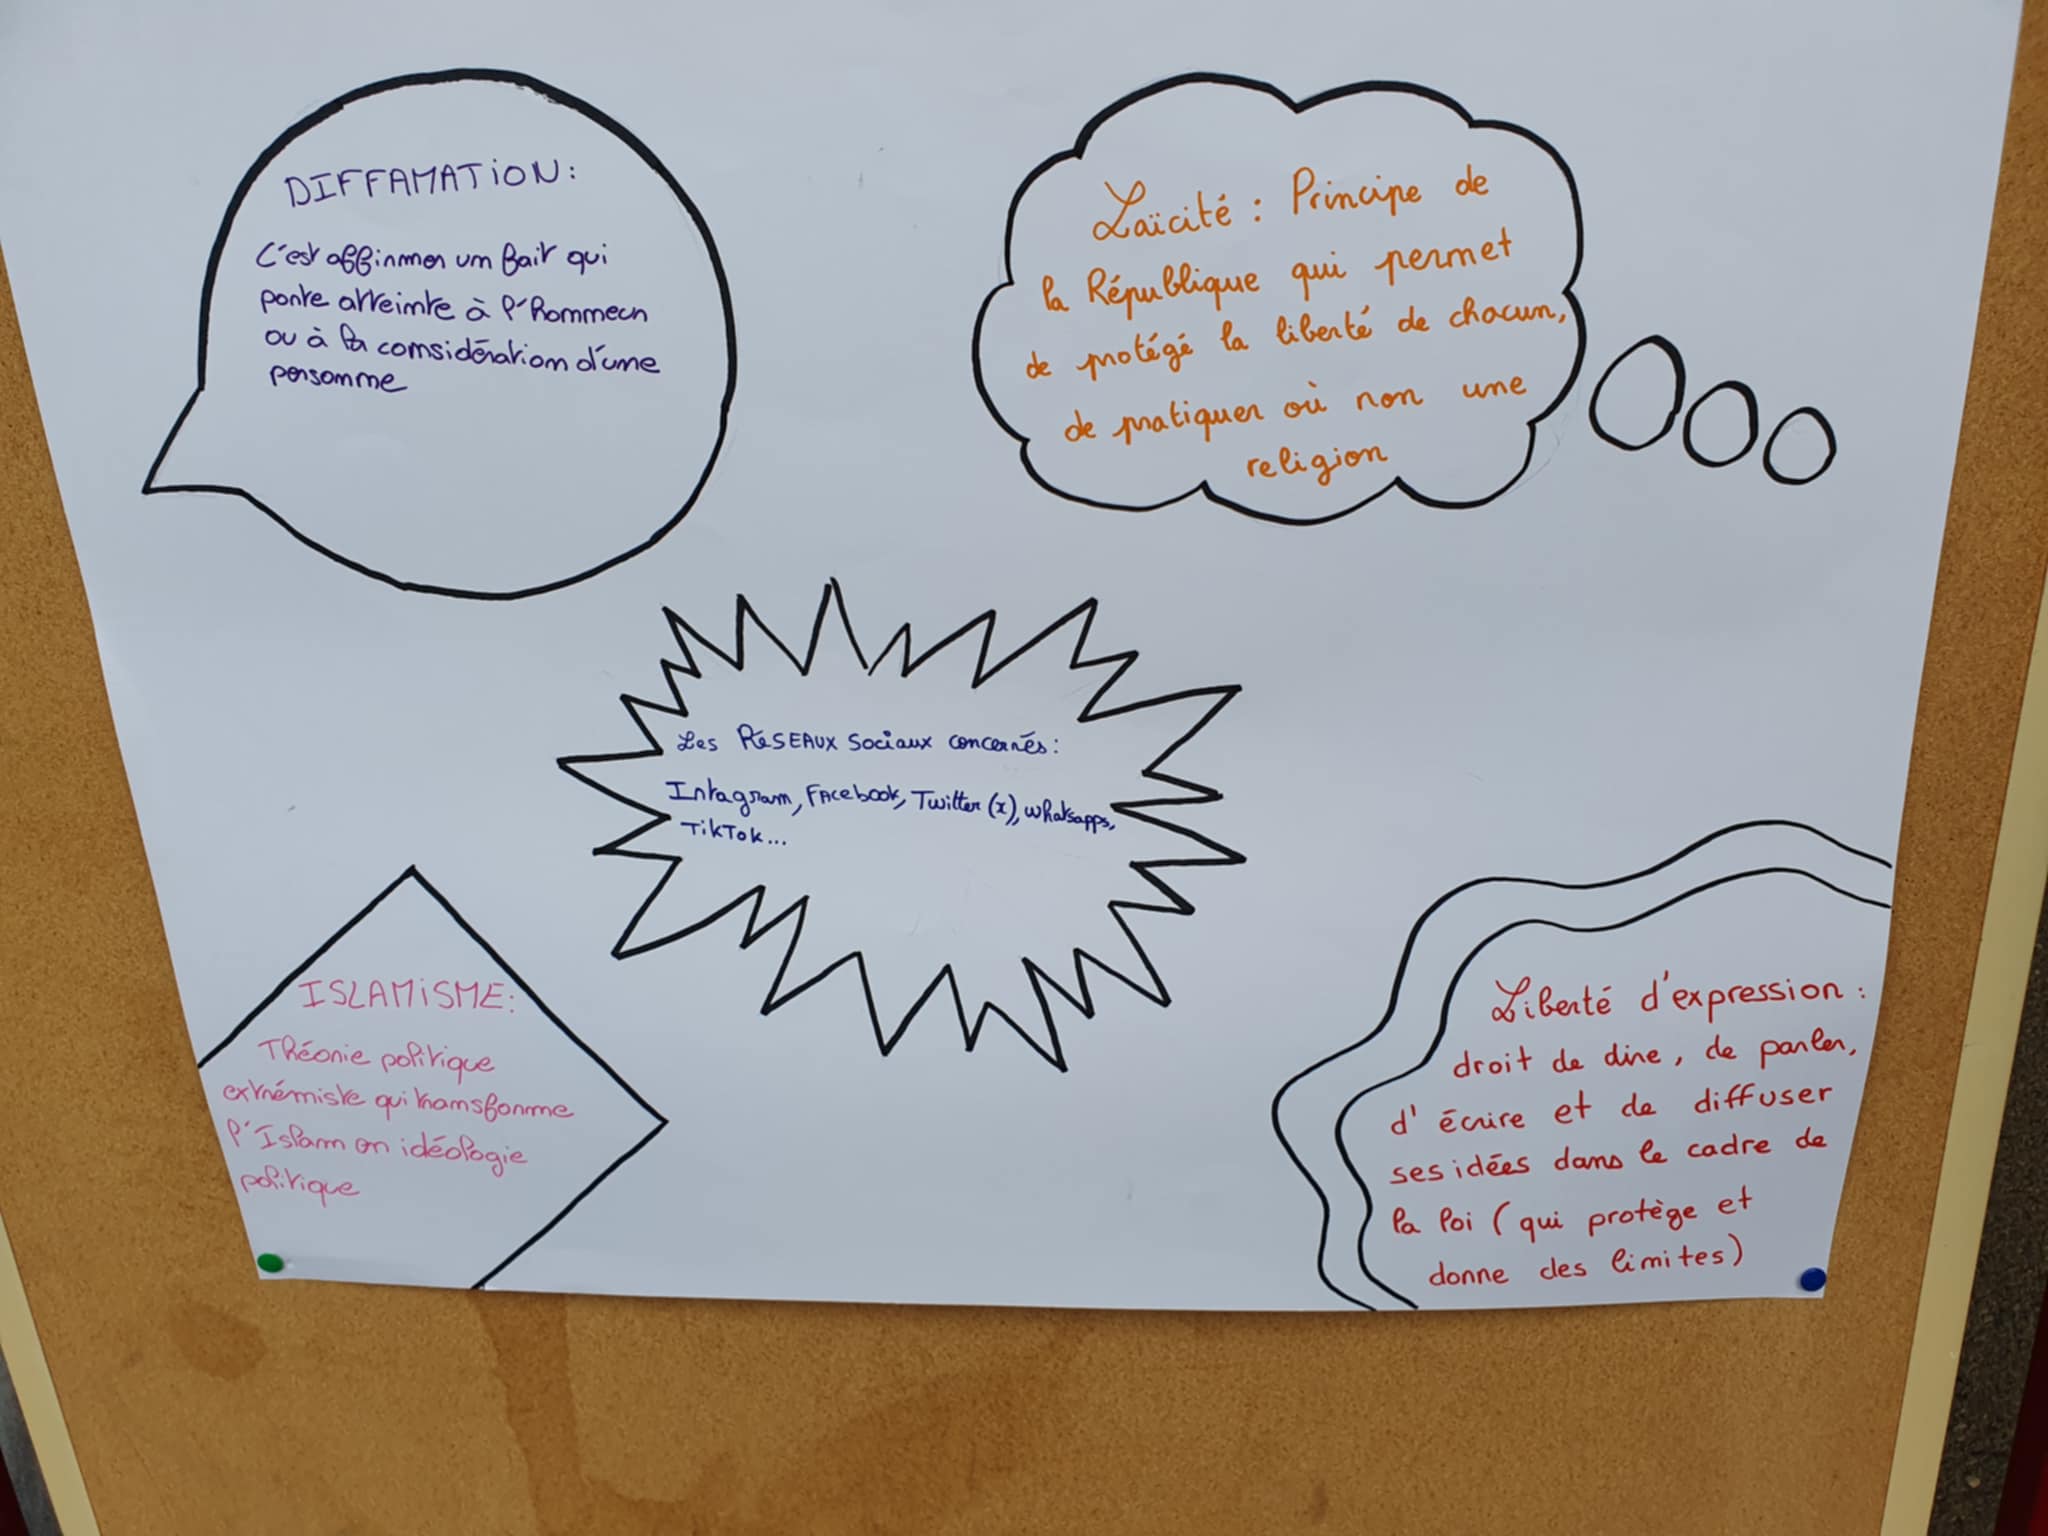 DIFFAMATION :
C'est affirmer un fait qui
porte atteinte à l'hommeun
ou à la considération d'une
personne
Laïcité : Principe de
la République qui permet
de protégé la liberté de chacun,
de pratiquer où non une
religion
Les RéSEAUX Sociaux concernés :
Intagram, Facebook, Twitter (x), whatsapps,
TikTok...
ISLAMISME :
Théorie politique
extrémiste qui transforme
l'Islam en idéologie
politique
Liberté d'expression :
droit de dire, de parler,
d'écrire et de diffuser
ses idées dans le cadre de
la loi (qui protège et
donne des limites)